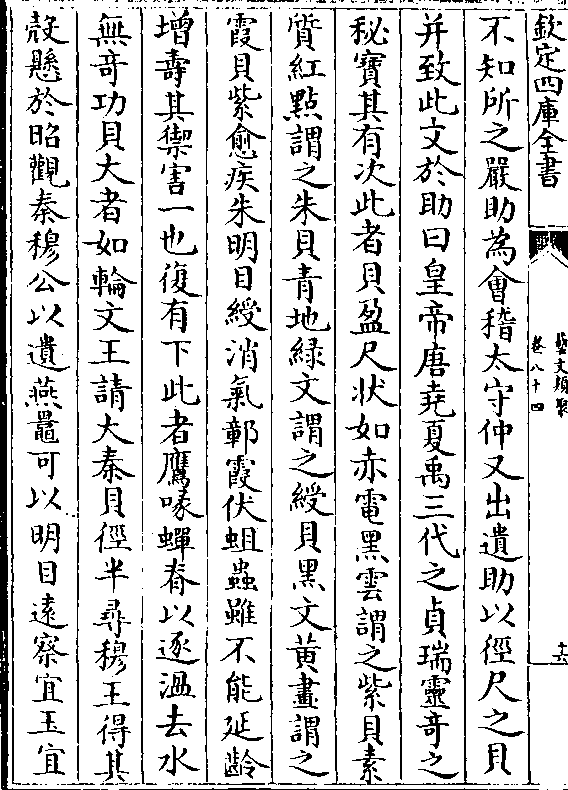 欽定四庫全書
藝文類聚
卷八十四
十六
不知所之嚴助為會稽太守仲又出遺助以徑尺之貝
并致此文於助曰皇帝唐堯夏禹三代之貞瑞靈奇之
秘寶其有次此者貝盈尺状如赤電黑雲謂之紫貝素
質紅點謂之朱貝青地緑文謂之綬貝黑文黄畫謂之
霞貝紫愈疾朱明目綬消氣鄣霞伏蛆蟲雖不能延齡
增壽其禦害一也復有下此者鷹喙蟬脊以逐温去水
無奇功貝大者如輪文王請大秦貝徑半尋穆王得其
殻懸於昭觀秦穆公以遺燕鼂可以明目逺察宜玉宜